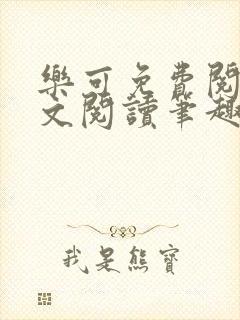 樂可免費閱
文閱讀筆趣
我是熊寶